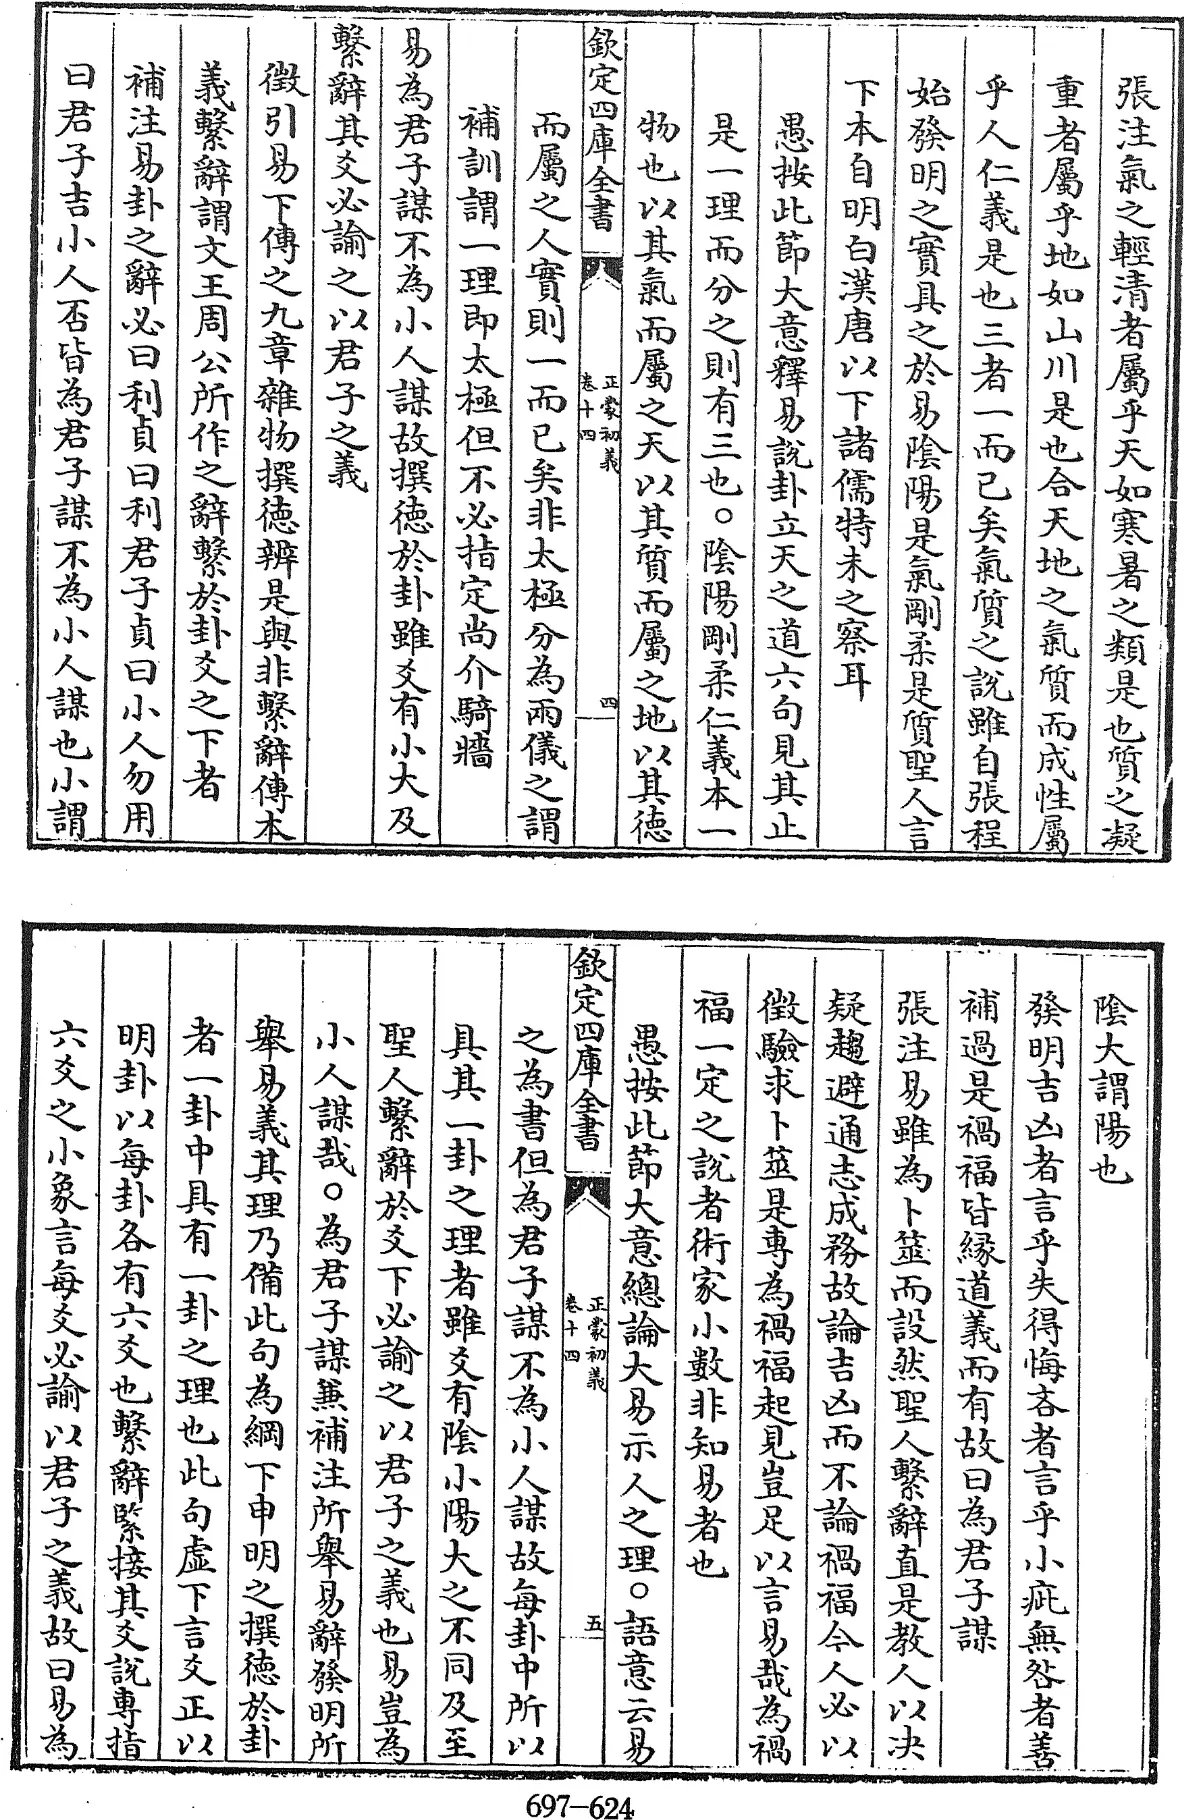 張注氣之輕清者屬乎天如寒暑之類是也質之凝
重者屬乎地如山川是也合天地之氣質而成性屬
乎人仁義是也三者一而已矣氣質之説雖自張程
始發明之實具之於易陰陽是氣剛柔是質聖人言
下本自明白漢唐以下諸儒特未之察耳
愚按此節大意釋易説卦立天之道六句見其止
是一理而分之則有三也○陰陽剛柔仁義本一
物也以其氣而屬之天以其質而屬之地以其徳
欽定四庫全書
正蒙初義
卷十四
四
而屬之人實則一而已矣非太極分為兩儀之謂
補訓謂一理即太極但不必指定尚介騎牆
易為君子謀不為小人謀故撰徳於卦雖爻有小大及
繫辭其爻必諭之以君子之義
徴引易下傳之九章雜物撰徳辨是與非繫辭傳本
義繫辭謂文王周公所作之辭繫於卦爻之下者
補注易卦之辭必曰利貞曰利君子貞曰小人勿用
曰君子吉小人否皆為君子謀不為小人謀也小謂
陰大謂陽也
發明吉凶者言乎失得悔吝者言乎小疵無咎者善
補過是禍福皆縁道義而有故曰為君子謀
張注易雖為卜筮而設然聖人繫辭直是教人以决
疑趨避通志成務故論吉凶而不論禍福今人必以
徴驗求卜筮是專為禍福起見豈足以言易哉為禍
福一定之説者術家小數非知易者也
愚按此節大意總論大易示人之理○語意云易
欽定四庫全書
正蒙初義
卷十四
五
之為書但為君子謀不為小人謀故每卦中所以
具其一卦之理者雖爻有陰小陽大之不同及至
聖人繫辭於爻下必諭之以君子之義也易豈為
小人謀哉○為君子謀兼補注所舉易辭發明所
舉易義其理乃備此句為綱下申明之撰徳於卦
者一卦中具有一卦之理也此句虚下言爻正以
明卦以每卦各有六爻也繫辭緊接其爻説專指
六爻之小象言每爻必諭以君子之義故曰易為
697-624